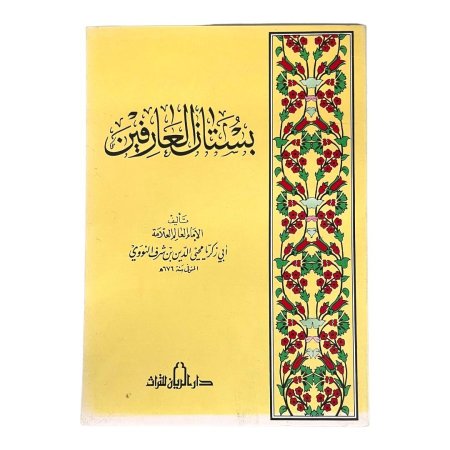 بستان العارفين
تأليف
الإمام العالم العلامة
أبي زكريا محيي الدين بن شرف النووي
المتوفى سنة ٦٧٦ هـ
دار الريان للتراث